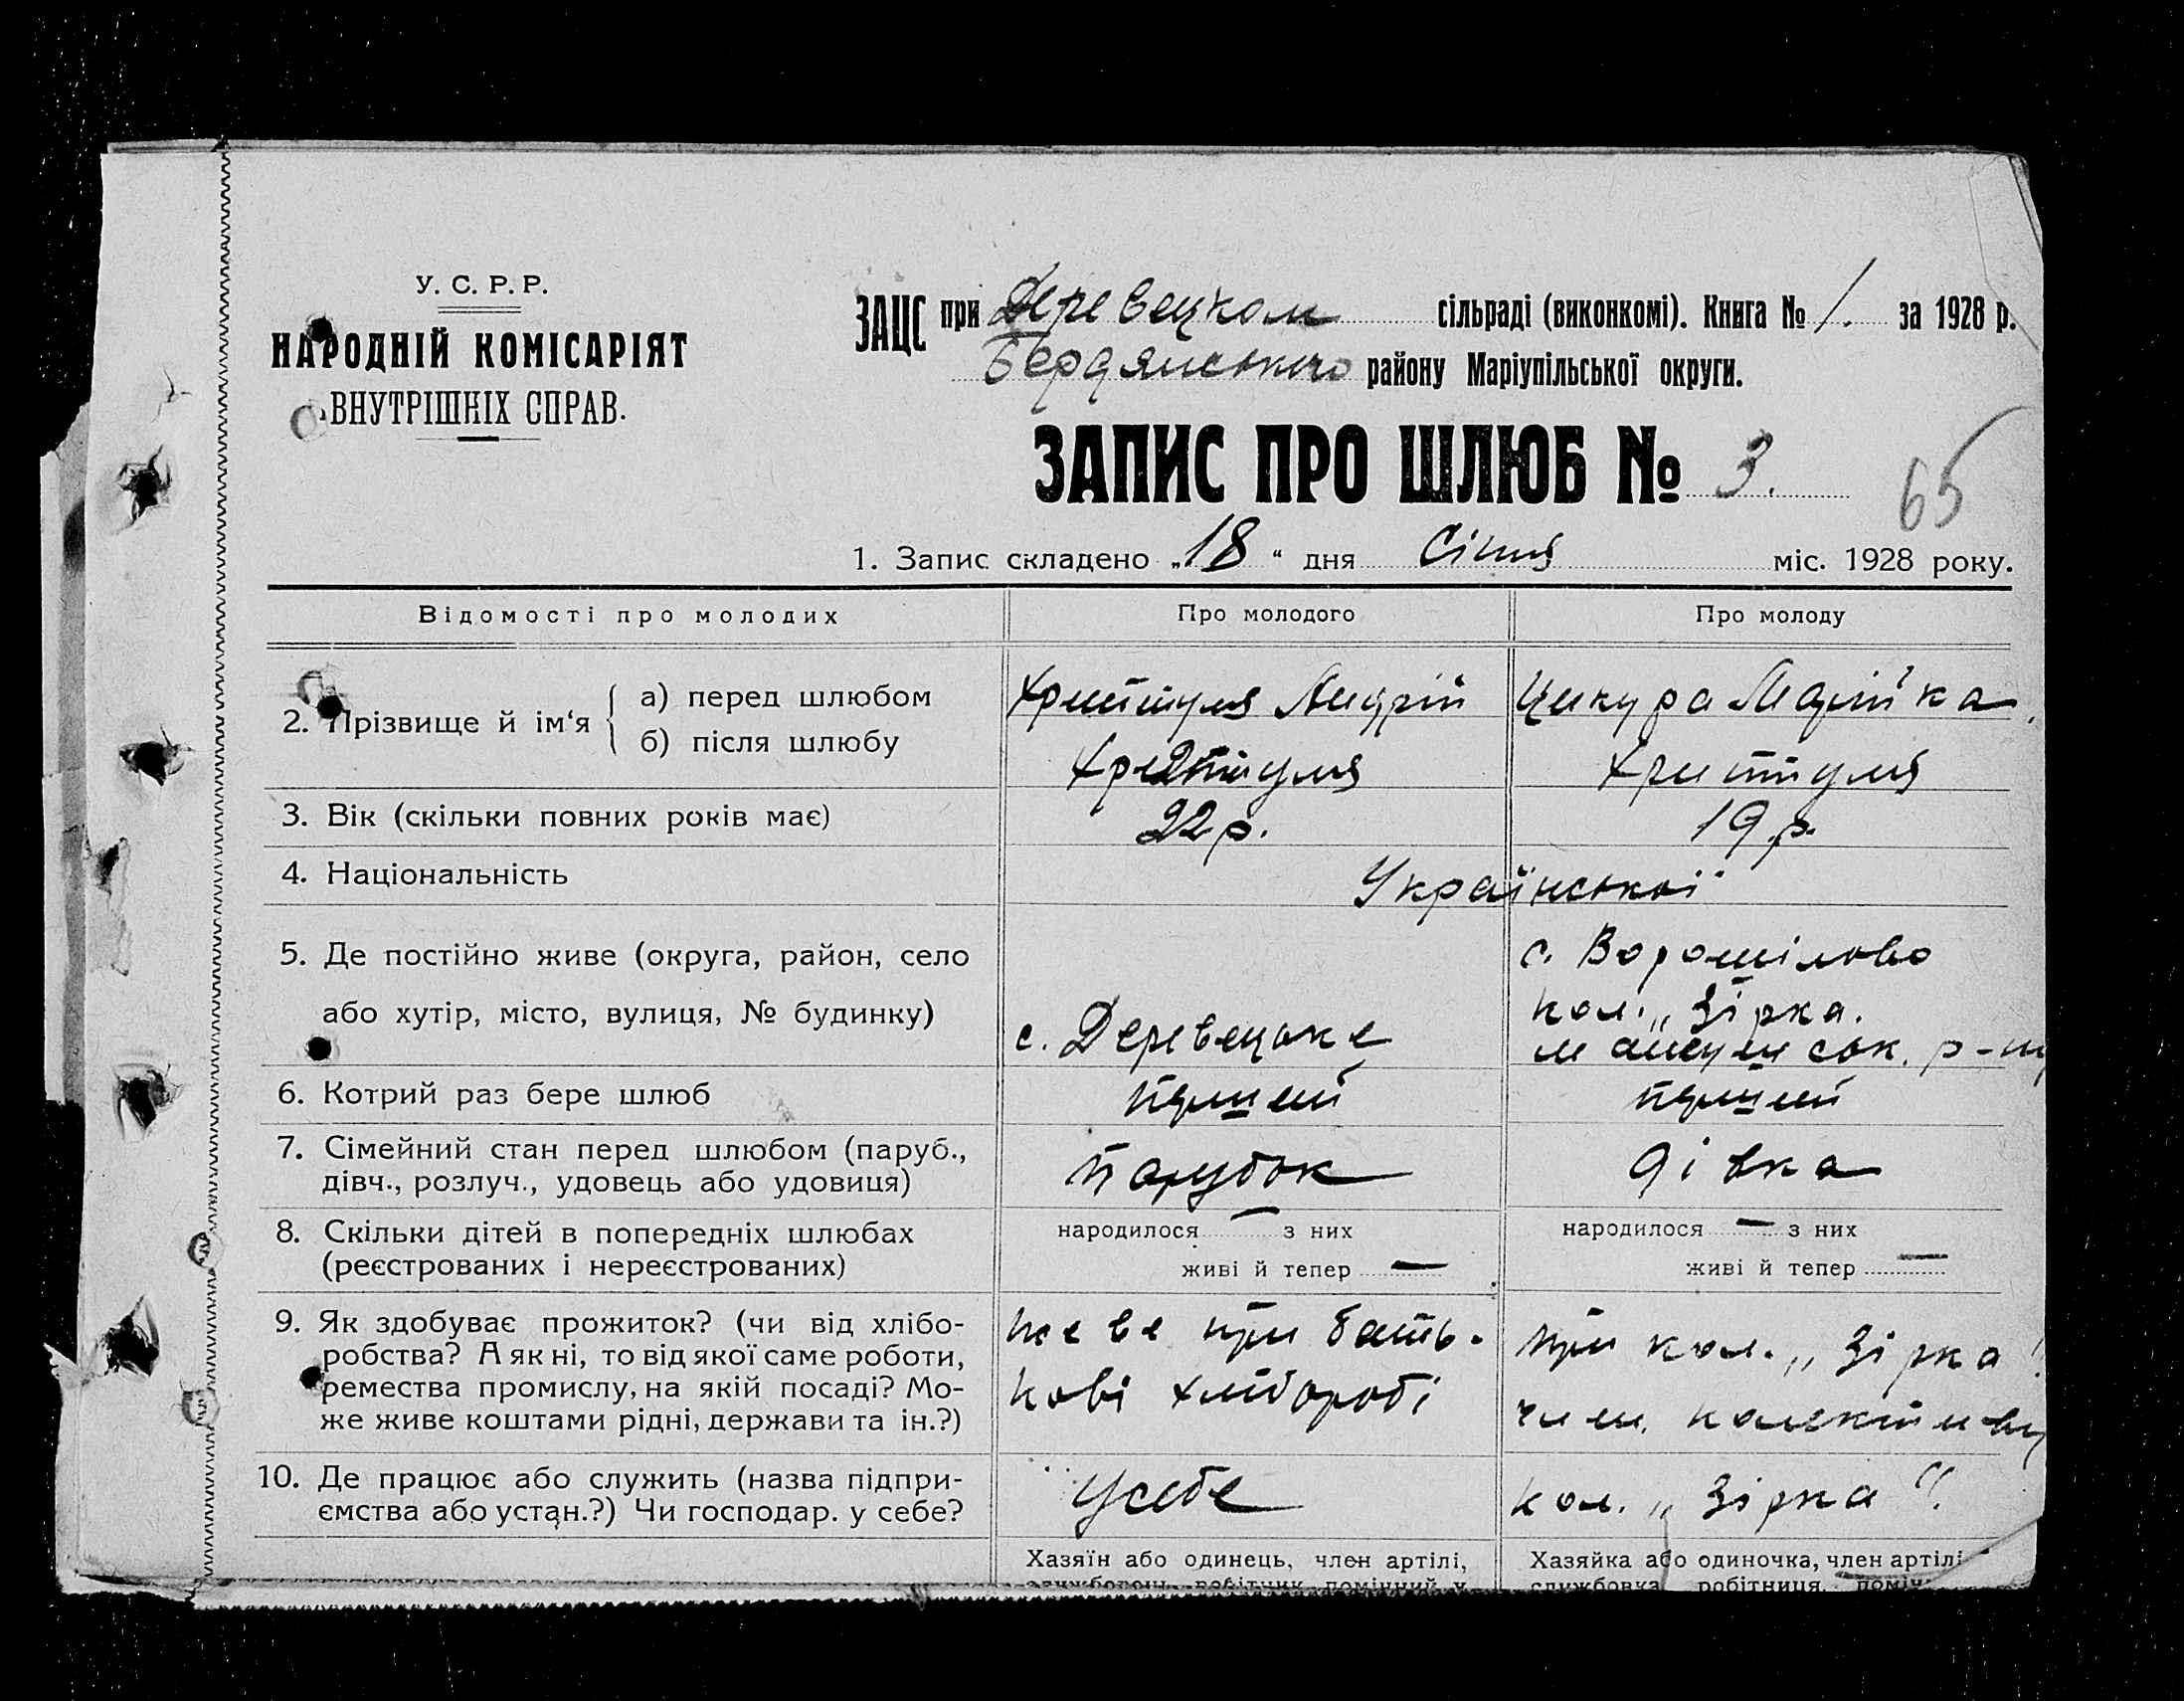 У. С. Р. Р.
НАРОДНІЙ КОМІСАРІЯТ
ВНУТРІШНІХ СПРАВ.
ЗАЦС при Деревецком сільраді (виконкомі). Книга № 1. за 1928 р.
Бердянського району Маріупільської округи.
ЗАПИС ПРО ШЛЮБ № 3.
65
1. Запис складено „18“ дня Січня міс. 1928 року.
Відомості про молодих Про молодого Про молоду
2. Прізвище й ім‘я а) перед шлюбом Андрій Цикура Марійка
б) після шлюбу
3. Вік (скільки повних років має) 22 р. 19 р.
4. Національність Української
5. Де постійно живе (округа, район, село с. Ворошілово
або хутір, місто, вулиця, № будинку) с. Деревецьке кол. „Зірка.
р-ну
6. Котрий раз бере шлюб перший перший
7. Сімейний стан перед шлюбом (паруб., парубок дівка
дівч., розлуч., удовець або удовиця)
8. Скільки дітей в попередніх шлюбах народилося — з них народилося — з них
(реєстрованих і нереєстрованих) живі й тепер — живі й тепер —
9. Як здобуває прожиток? (чи від хлібо- живе при бать- при кол. „Зірка"
робства? А як ні, то від якої саме роботи,
ремества промислу, на якій посаді? Мо- кові хліборобі член. колективу
же живе коштами рідні, держави та ін.?)
10. Де працює або служить (назва підпри- У себе кол. „Зірка“.
ємства або устан.?) Чи господар. у себе?
Хазяїн або одинець, член артілі, Хазяйка або одиночка, член артілі
службовець, робітник, помічний у службовка, робітниця,